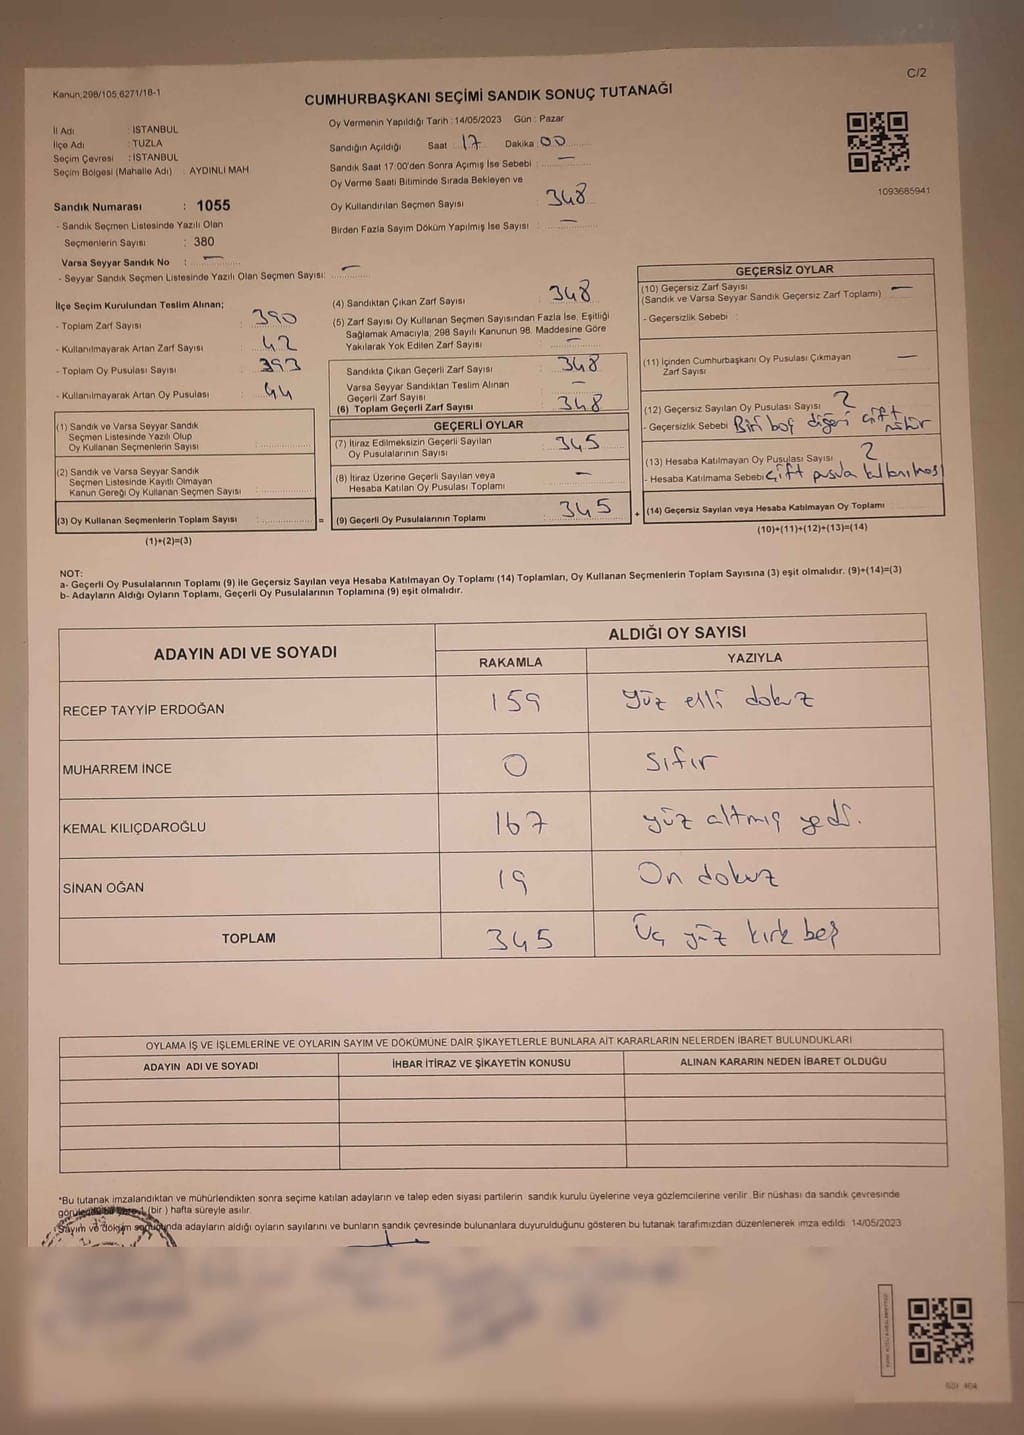 Kanun:298/105,6271/18-1
C/2
CUMHURBAŞKANI SEÇİMİ SANDIK SONUÇ TUTANAĞI
İl Adı : İSTANBUL
İlçe Adı : TUZLA
Seçim Çevresi : İSTANBUL
Seçim Bölgesi (Mahalle Adı) : AYDINLI MAH
Oy Vermenin Yapıldığı Tarih : 14/05/2023 Gün : Pazar
Sandığın Açıldığı Saat 17 Dakika 00
Sandık Saat 17:00'den Sonra Açımış İse Sebebi : —
Oy Verme Saati Bitiminde Sırada Bekleyen ve
Oy Kullandırılan Seçmen Sayısı : 348
Birden Fazla Sayım Döküm Yapılmış İse Sayısı : —
1093685941
Sandık Numarası : 1055
- Sandık Seçmen Listesinde Yazılı Olan
Seçmenlerin Sayısı : 380
Varsa Seyyar Sandık No : —
- Seyyar Sandık Seçmen Listesinde Yazılı Olan Seçmen Sayısı: —
İlçe Seçim Kurulundan Teslim Alınan;
- Toplam Zarf Sayısı : 390
- Kullanılmayarak Artan Zarf Sayısı : 42
- Toplam Oy Pusulası Sayısı : 393
- Kullanılmayarak Artan Oy Pusulası : 44
(1) Sandık ve Varsa Seyyar Sandık
Seçmen Listesinde Yazılı Olup
Oy Kullanan Seçmenlerin Sayısı
(2) Sandık ve Varsa Seyyar Sandık
Seçmen Listesinde Kayıtlı Olmayan
Kanun Gereği Oy Kullanan Seçmen Sayısı
(3) Oy Kullanan Seçmenlerin Toplam Sayısı =
(1)+(2)=(3)
(4) Sandıktan Çıkan Zarf Sayısı : 348
(5) Zarf Sayısı Oy Kullanan Seçmen Sayısından Fazla İse, Eşitliği
Sağlamak Amacıyla, 298 Sayılı Kanunun 98. Maddesine Göre
Yakılarak Yok Edilen Zarf Sayısı : —
Sandıkta Çıkan Geçerli Zarf Sayısı : 348
Varsa Seyyar Sandıktan Teslim Alınan
Geçerli Zarf Sayısı : —
(6) Toplam Geçerli Zarf Sayısı : 348
GEÇERLİ OYLAR
(7) İtiraz Edilmeksizin Geçerli Sayılan
Oy Pusulalarının Sayısı : 345
(8) İtiraz Üzerine Geçerli Sayılan veya
Hesaba Katılan Oy Pusulası Toplamı : —
(9) Geçerli Oy Pusulalarının Toplamı : 345 +
GEÇERSİZ OYLAR
(10) Geçersiz Zarf Sayısı
(Sandık ve Varsa Seyyar Sandık Geçersiz Zarf Toplamı) —
- Geçersizlik Sebebi :
(11) İçinden Cumhurbaşkanı Oy Pusulası Çıkmayan
Zarf Sayısı —
(12) Geçersiz Sayılan Oy Pusulası Sayısı 2
- Geçersizlik Sebebi Biri boş diğeri çift
mühür
(13) Hesaba Katılmayan Oy Pusulası Sayısı 2
- Hesaba Katılmama Sebebi: çift pusula
(14) Geçersiz Sayılan veya Hesaba Katılmayan Oy Toplamı
(10)+(11)+(12)+(13)=(14)
NOT:
a- Geçerli Oy Pusulalarının Toplamı (9) ile Geçersiz Sayılan veya Hesaba Katılmayan Oy Toplamı (14) Toplamları, Oy Kullanan Seçmenlerin Toplam Sayısına (3) eşit olmalıdır. (9)+(14)=(3)
b- Adayların Aldığı Oyların Toplamı, Geçerli Oy Pusulalarının Toplamına (9) eşit olmalıdır.
ADAYIN ADI VE SOYADI
ALDIĞI OY SAYISI
RAKAMLA YAZIYLA
RECEP TAYYİP ERDOĞAN 159 yüz elli dokuz
MUHARREM İNCE 0 sıfır
KEMAL KILIÇDAROĞLU 167 yüz altmış yedi.
SİNAN OĞAN 19 On dokuz
TOPLAM 345 Üç yüz kırk beş
OYLAMA İŞ VE İŞLEMLERİNE VE OYLARIN SAYIM VE DÖKÜMÜNE DAİR ŞİKAYETLERLE BUNLARA AİT KARARLARIN NELERDEN İBARET BULUNDUKLARI
ADAYIN ADI VE SOYADI İHBAR İTİRAZ VE ŞİKAYETİN KONUSU ALINAN KARARIN NEDEN İBARET OLDUĞU
*Bu tutanak imzalandıktan ve mühürlendikten sonra seçime katılan adayların ve talep eden siyasi partilerin sandık kurulu üyelerine veya gözlemcilerine verilir. Bir nüshası da sandık çevresinde
(bir) hafta süreyle asılır.
Sayım ve döküm sonucunda adayların aldığı oyların sayılarını ve bunların sandık çevresinde bulunanlara duyurulduğunu gösteren bu tutanak tarafımızdan düzenlenerek imza edildi 14/05/2023